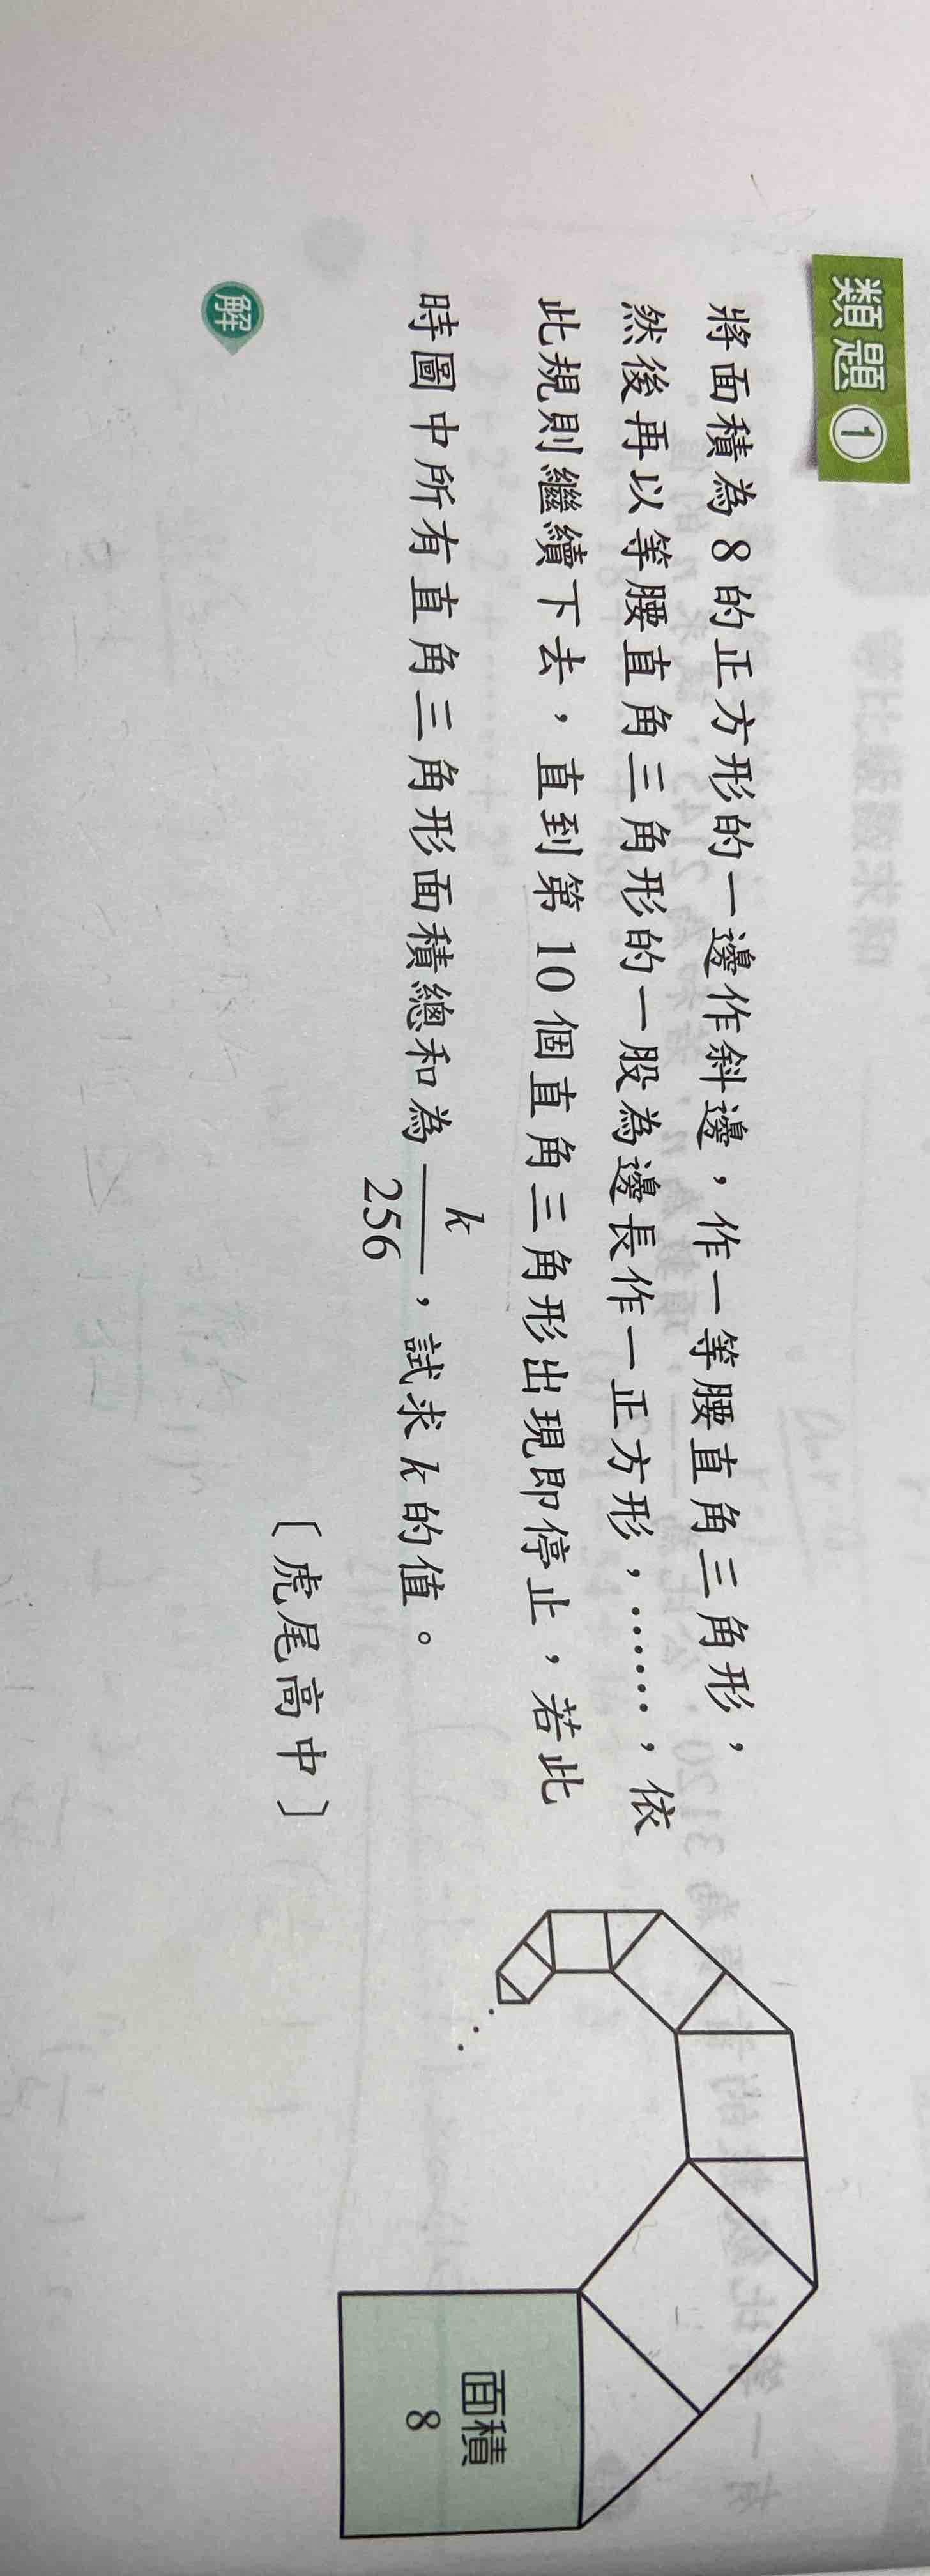 類題 1
將面積為 8 的正方形的一邊作斜邊，作一等腰直角三角形，
然後再以等腰直角三角形的一股為邊長作一正方形，……，依
此規則繼續下去，直到第 10 個直角三角形出現即停止，若此
時圖中所有直角三角形面積總和為 k/256，試求 k 的值。
〔虎尾高中〕
解
面積
8